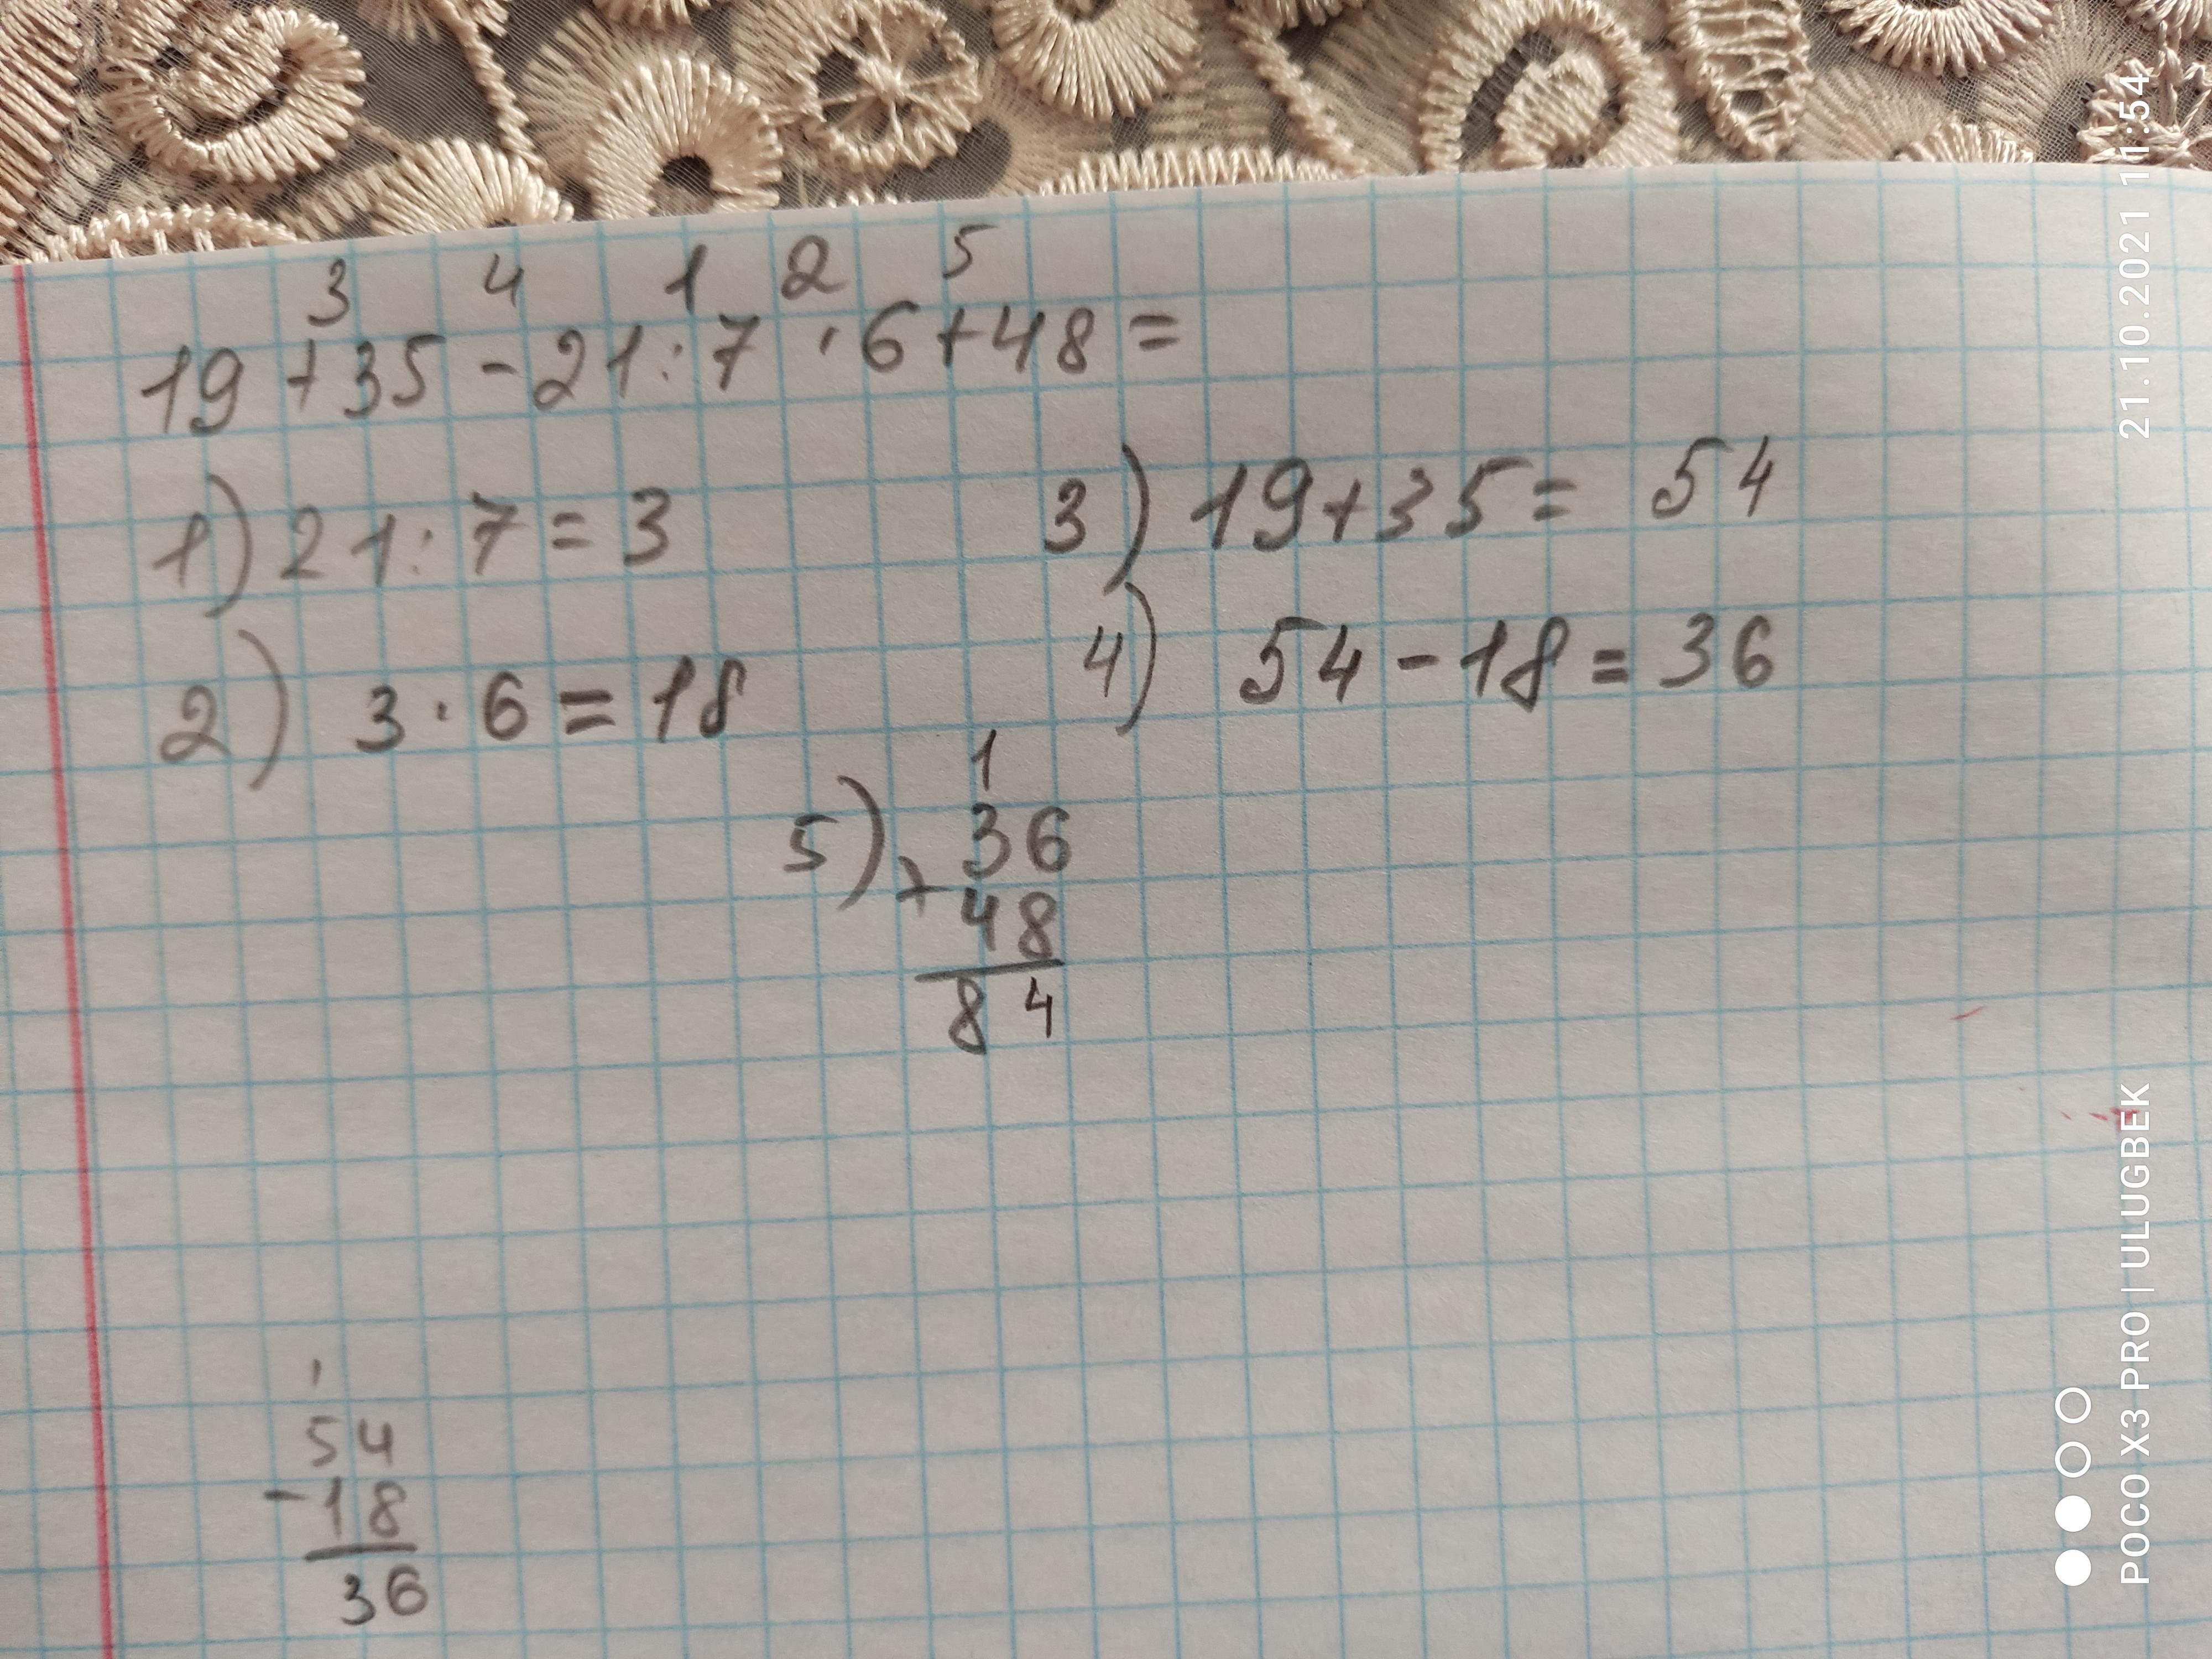 3 4 1 2 5
19 + 35 - 21 : 7 · 6 + 48 =
1) 21 : 7 = 3
2) 3 · 6 = 18
3) 19 + 35 = 54
4) 54 - 18 = 36
1
5) 36
+ 48
84
1
54
- 18
36
21.10.2021 11:54
POCO X3 PRO | ULUGBEK